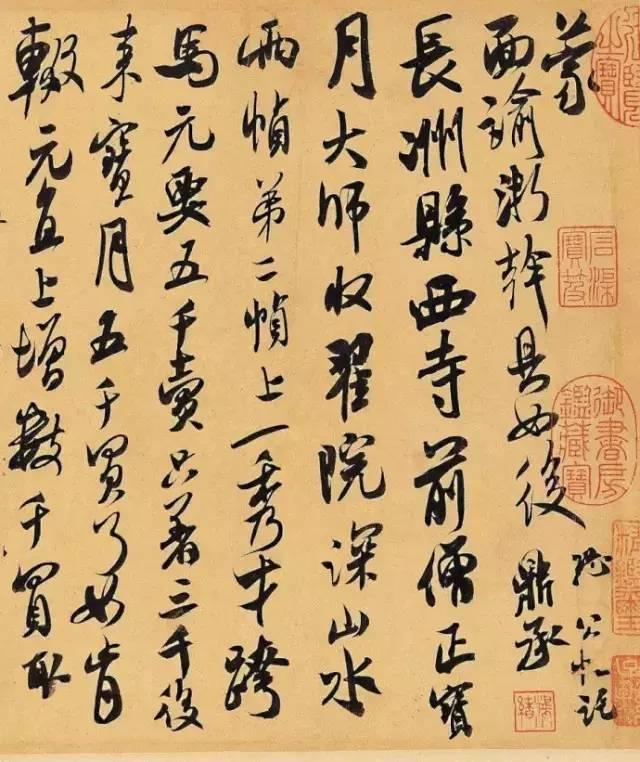 蒙
面諭浙幹具如後 鼎承
長洲縣西寺前僧正寶
月大師收翟院深山水
兩幀第二幀上一秀才跨
馬元要五千賣只著三千後
来寶月五千買了如肯
輟元直上增數千買取
御書房鑑藏寶